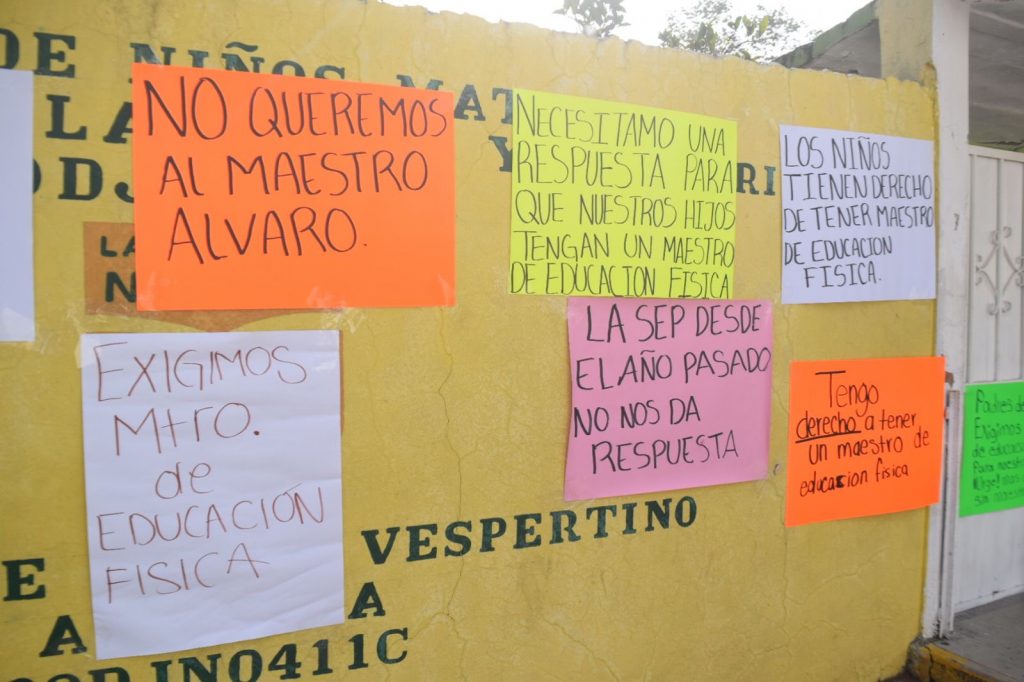 DE NIÑOS MAT
LA
Y
RI
LA
N
NO QUEREMOS
AL MAESTRO
ALVARO.
NECESITAMO UNA
RESPUESTA PARA
QUE NUESTROS HIJOS
TENGAN UN MAESTRO
DE EDUCACION FISICA
LOS NIÑOS
TIENEN DERECHO
DE TENER MAESTRO
DE EDUCACION
FISICA.
EXIGIMOS
Mtro.
de
EDUCACIÓN
FISICA
LA SEP DESDE
EL AÑO PASADO
NO NOS DA
RESPUESTA
Tengo
derecho a tener
un maestro de
educacion fisica
Padres de
Exigimos
de educac
Para nuestr
Urge! mas
sin maestr
E VESPERTINO
A A
DJN0411C